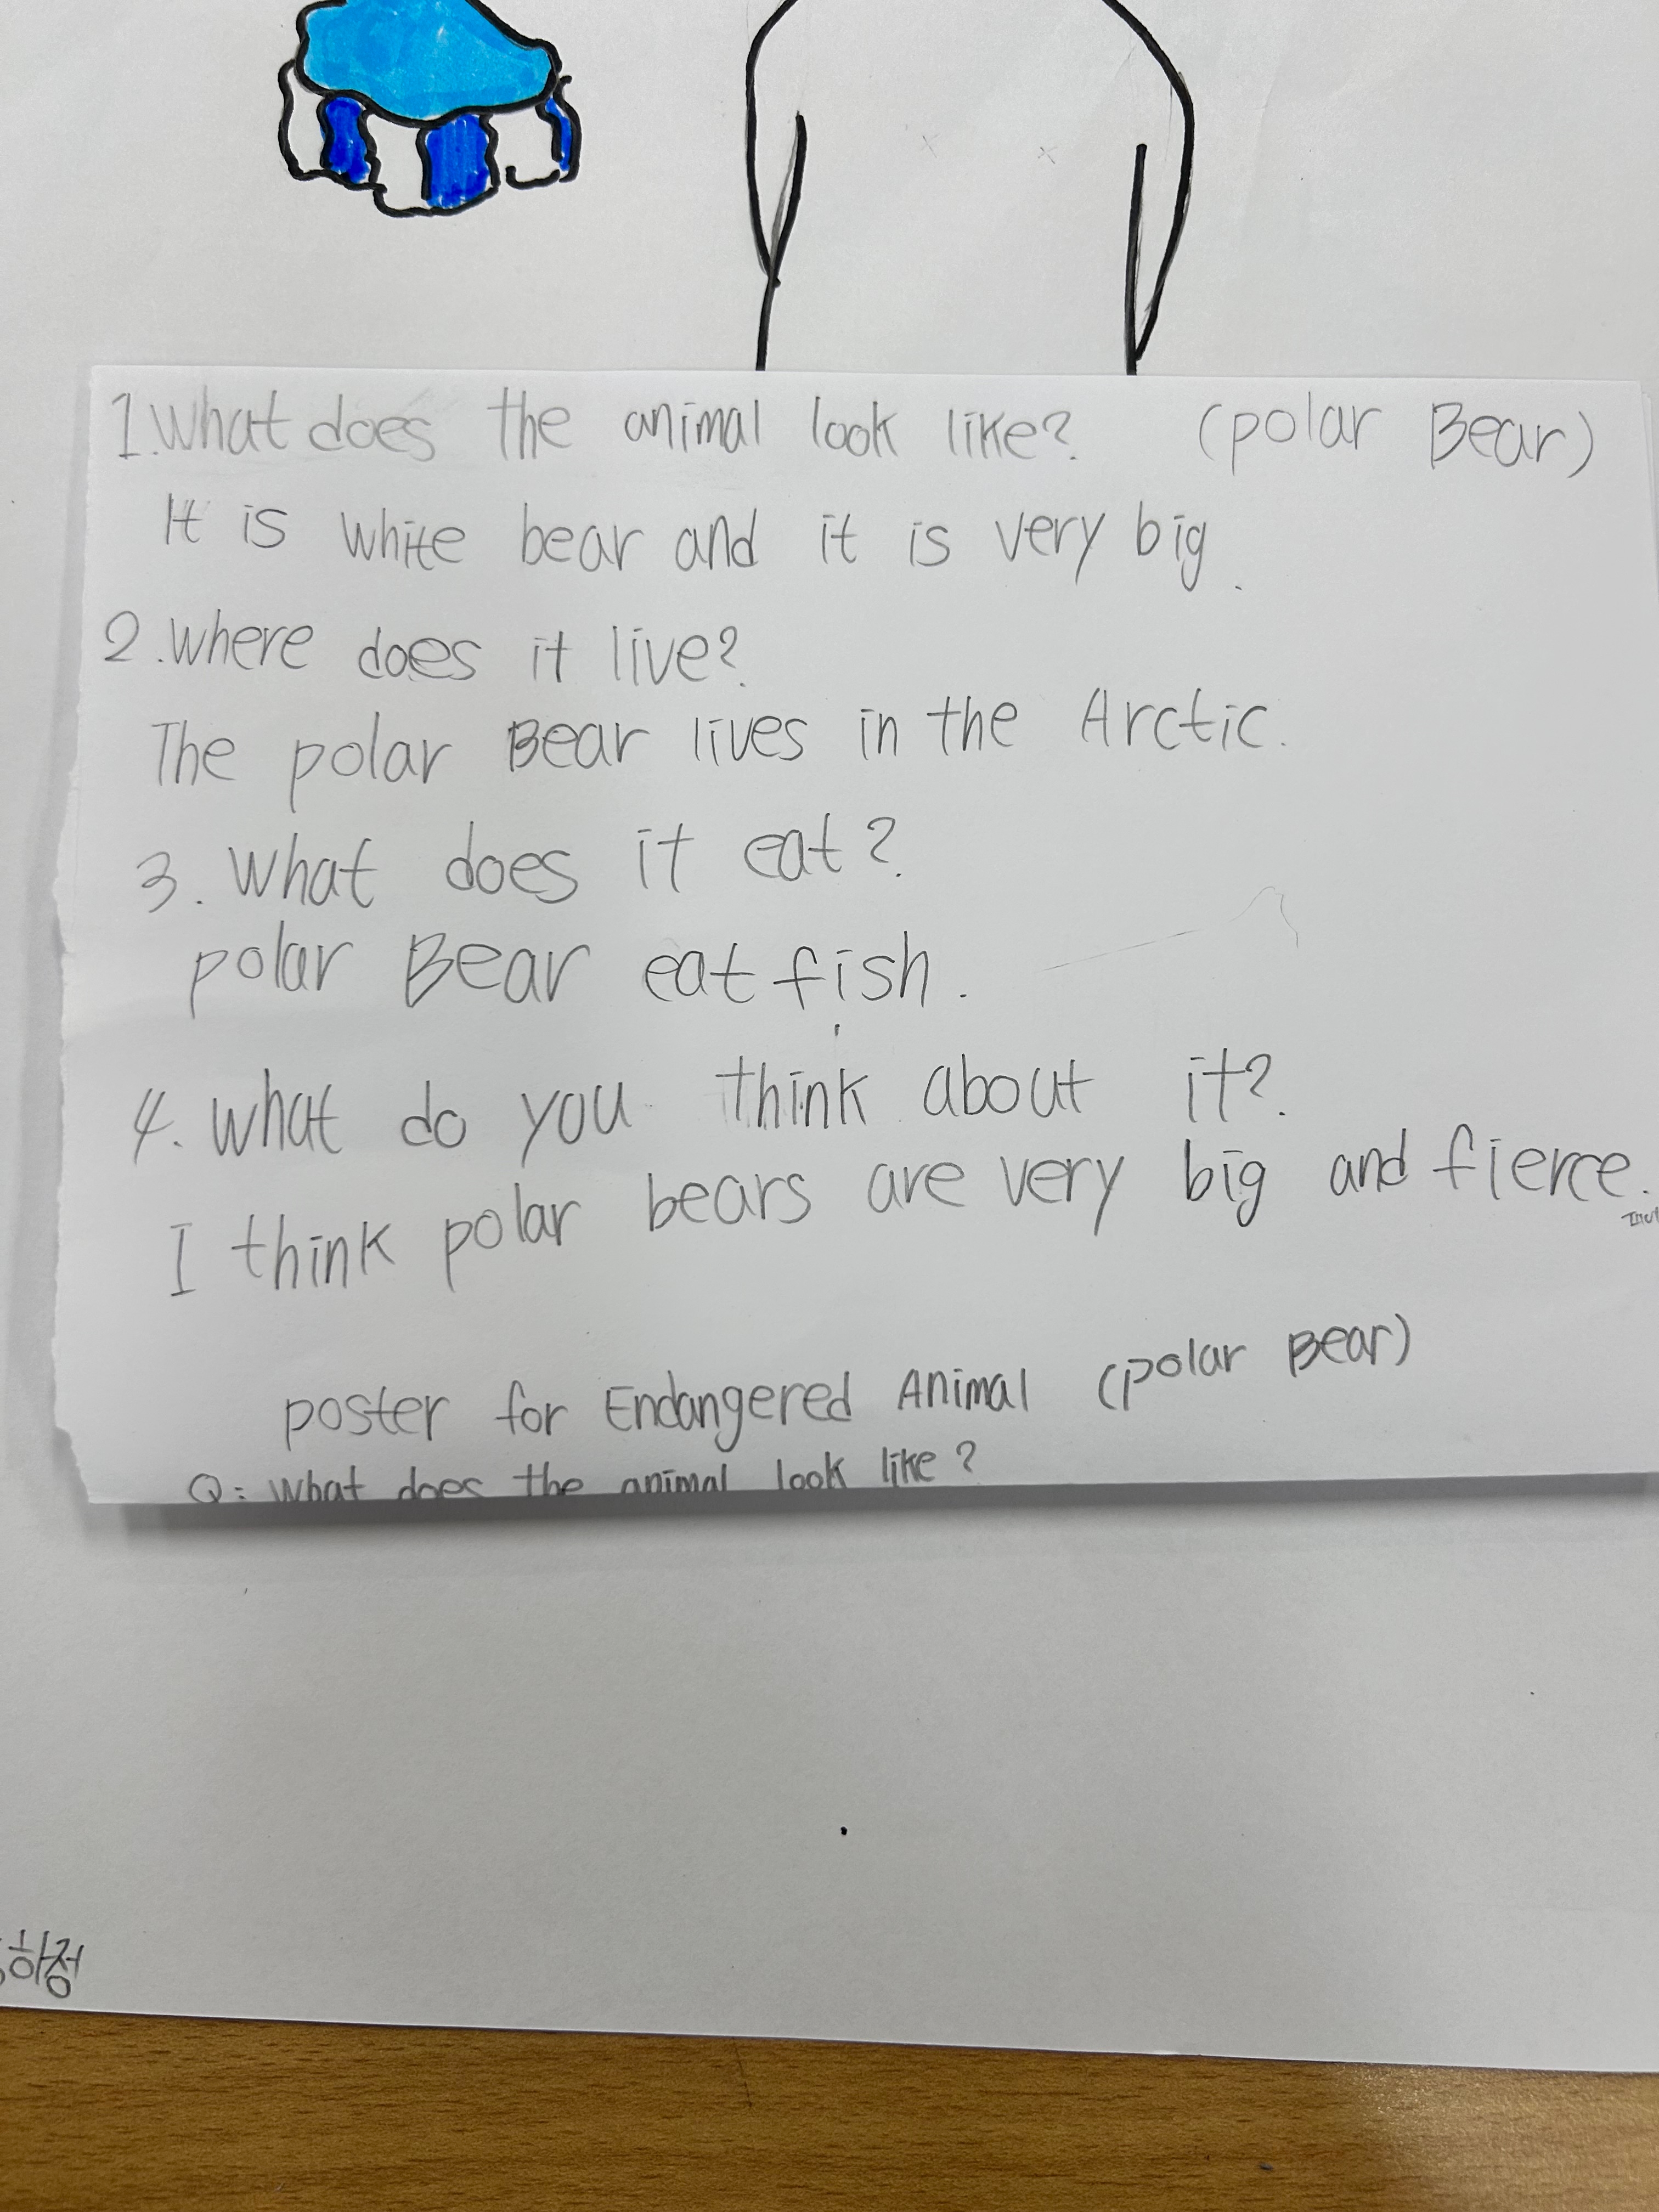 1. What does the animal look like? (polar Bear)
It is white bear and it is very big.
2. where does it live?
The polar Bear lives in the Arctic.
3. What does it eat?
polar Bear eat fish.
4. what do you think about it?
I think polar bears are very big and fierce.
poster for Endangered Animal (polar Bear)
Q: What does the animal look like?
하정